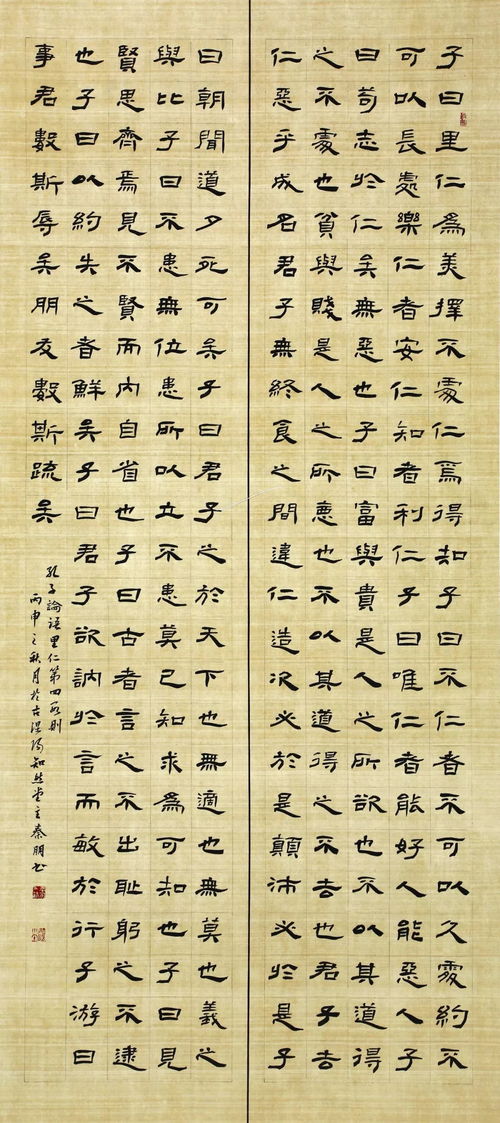 子曰里仁為美擇不處仁焉得知子曰不仁者不可以久處約不
可以長處樂仁者安仁知者利仁子曰唯仁者能好人能惡人子
曰苟志於仁矣無惡也子曰富與貴是人之所欲也不以其道得
之不處也貧與賤是人之所惡也不以其道得之不去也君子去
仁惡乎成名君子無終食之間違仁造次必於是顛沛必於是子
曰朝聞道夕死可矣子曰君子之於天下也無適也無莫也義之
與比子曰不患無位患所以立不患莫己知求為可知也子曰見
賢思齊焉見不賢而內自省也子曰古者言之不出恥躬之不逮
也子曰以約失之者鮮矣子曰君子欲訥於言而敏於行子游曰
事君數斯辱矣朋友數斯疏矣
孔子論語里仁第四則
丙申之秋月於古陽知堂主秦朋書